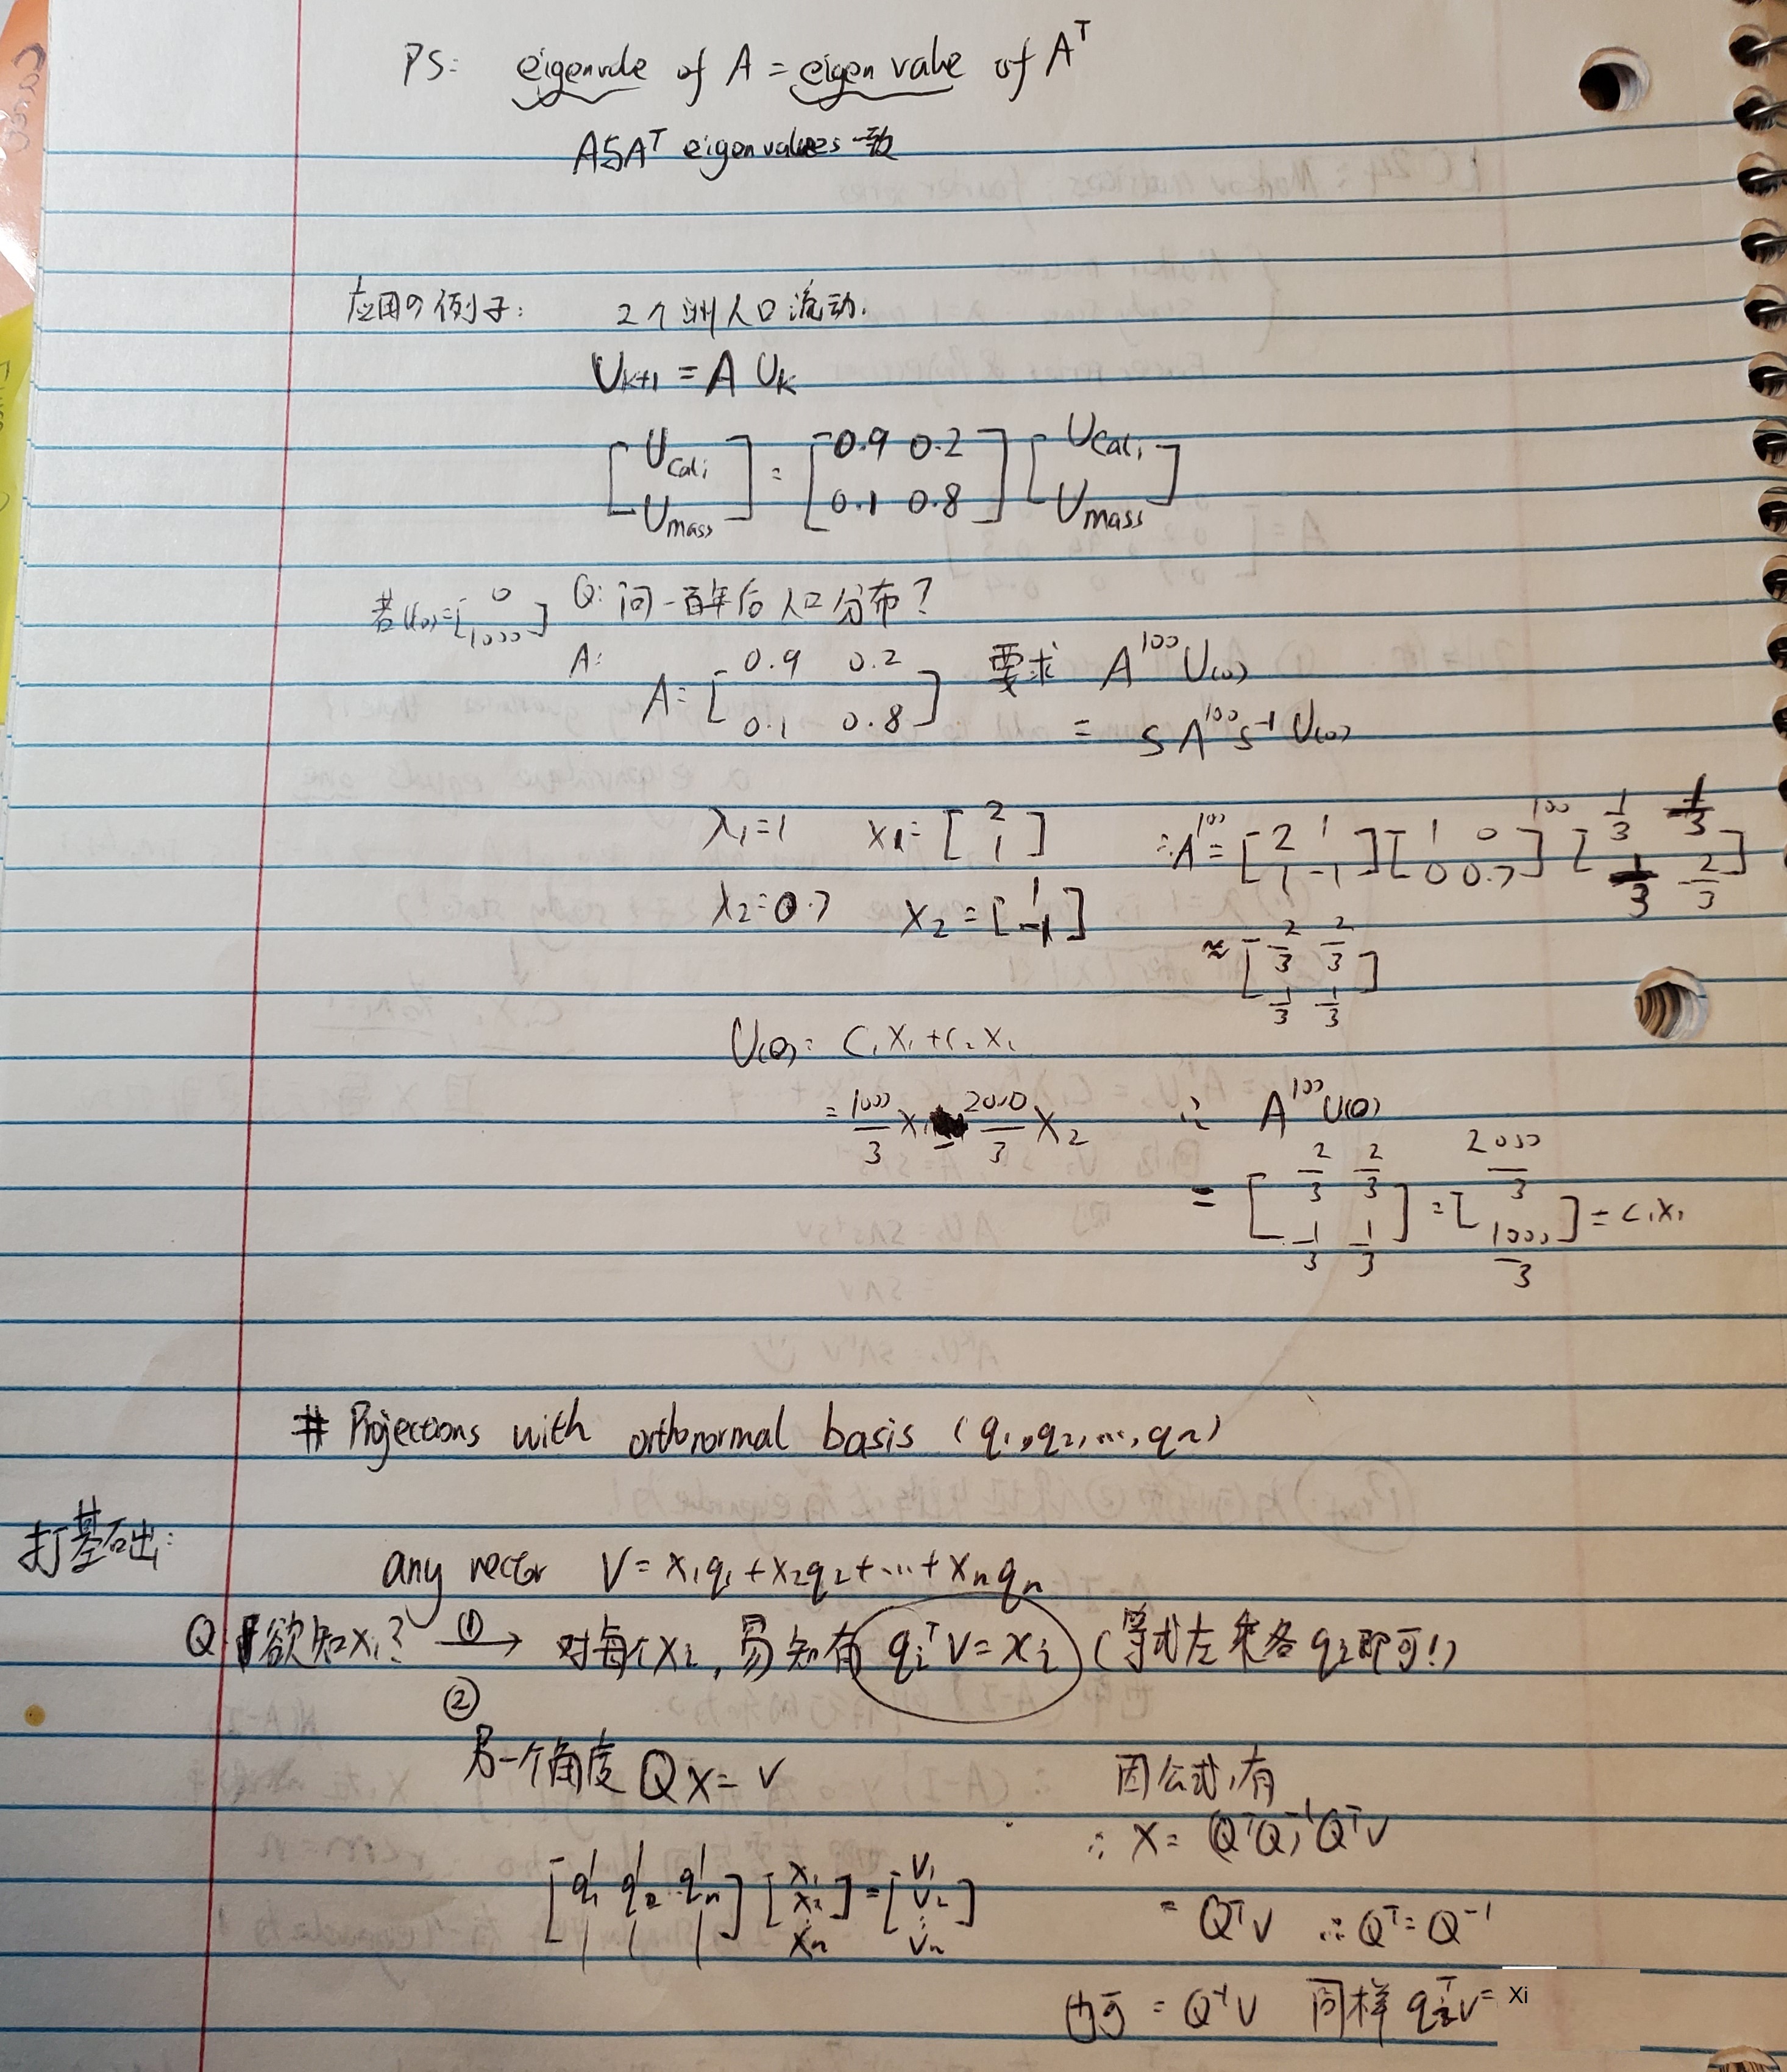 PS: eigenvalue of A = eigen value of Aᵀ
A与Aᵀ eigenvalues 一致
应用の例子: 2个洲人口流动.
U_{k+1} = A U_k
[U_{Cali} U_{mass}] = [0.9 0.2; 0.1 0.8] [U_{Cali} U_{mass}]
若U(0)=[0; 1000] Q: 问一百年后人口分布?
A: A=[0.9 0.2; 0.1 0.8] 要求 A^{100} U(0)
= S Λ^{100} S^{-1} U(0)
λ₁=1 x₁=[2; 1] ∴A^{100}=[2 1; 1 -1][1 0; 0 0.7]^{100}[1/3 1/3; 1/3 -2/3]
λ₂=0.7 x₂=[1; -1] ≈[2/3 2/3; 1/3 1/3]
U(0)= C₁X₁+C₂X₂
= 1000/3 X₁ - 2000/3 X₂ ∴ A^{100}U(0)
= [2/3 2/3; 1/3 1/3] = [2000/3; 1000/3] = C₁X₁
# Projections with orthonormal basis (q₁,q₂,…,qn)
打基础:
any vector V = x₁q₁+x₂q₂+…+xnqn
Q 欲知xi? ①→ 对每个xi, 易知有 qiᵀV=xi (等式左乘各qi即可!)
②
另一个角度 Qx=v 因公式,有
∴ X= (QᵀQ)^{-1}Qᵀv
[q₁ q₂ … qn][x₁ x₂ ⋮ xn]=[v₁ v₂ ⋮ vn]
= Qᵀv ∴ Qᵀ=Q^{-1}
也可 = Q^{-1}v 同样 qiᵀv= Xi